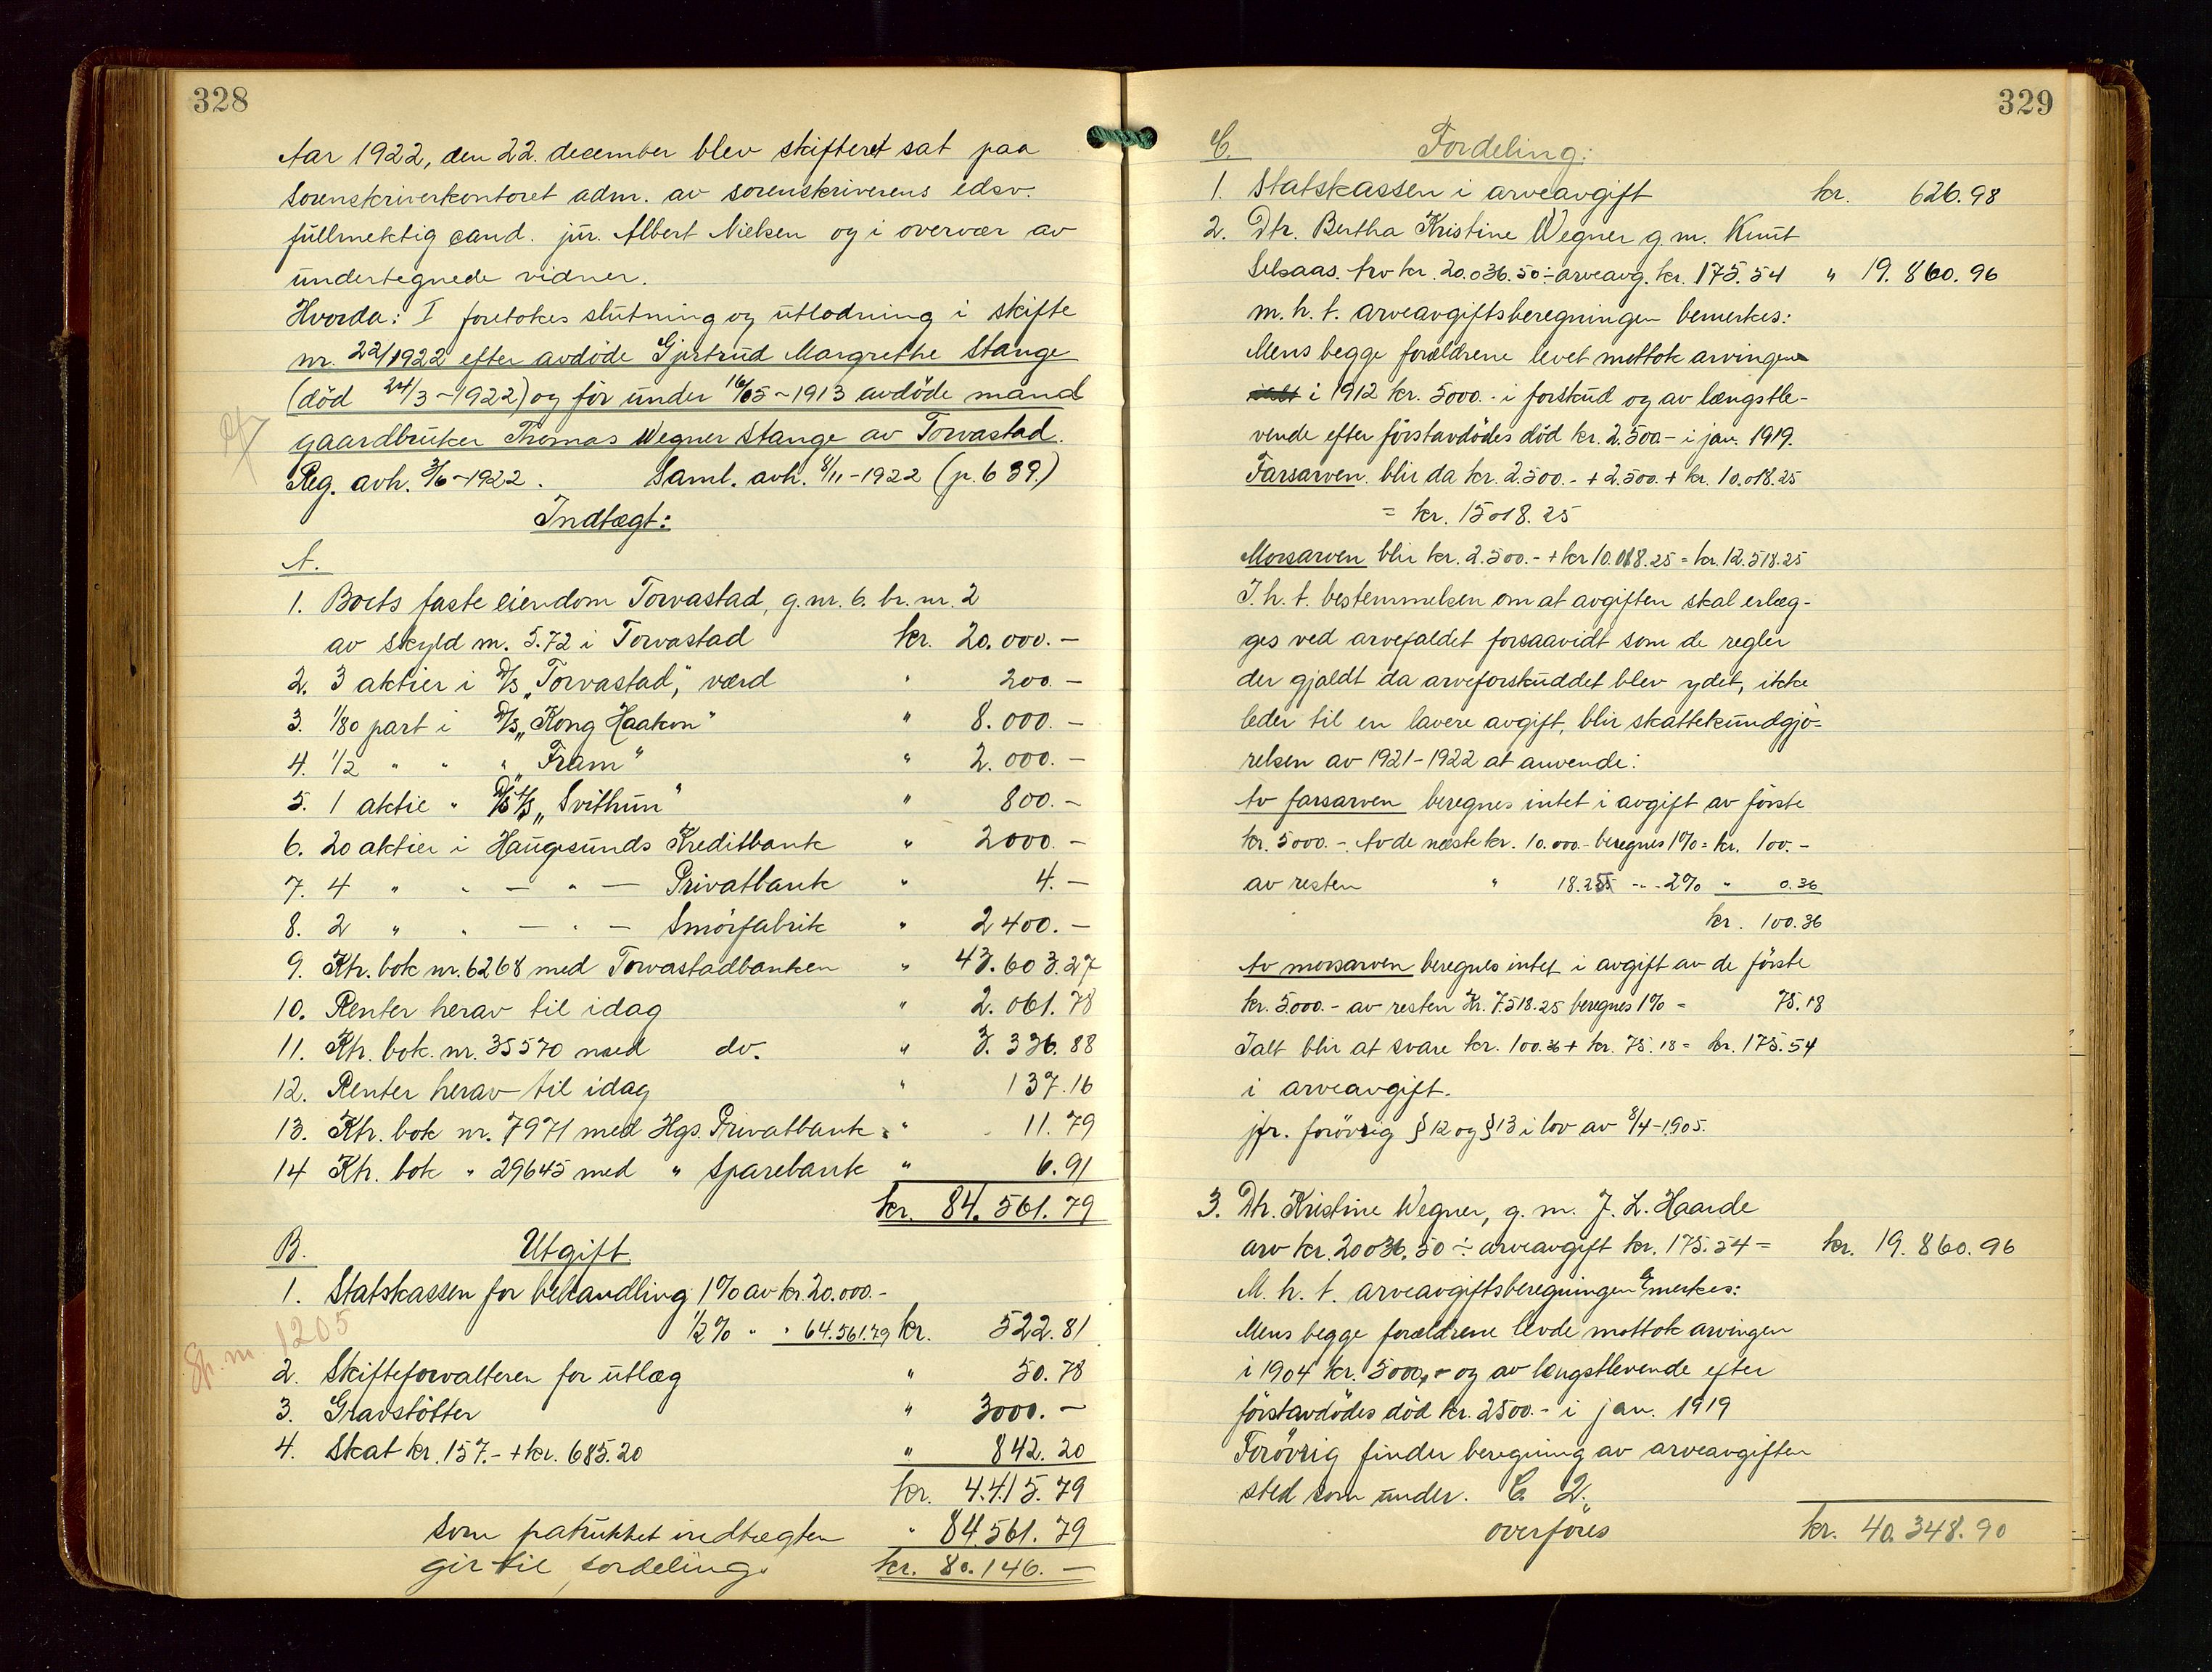 328
Aar 1922, den 22. december blev skifteret sat paa
sorenskriverkontoret adm. av sorenskriverens edsv.
fullmektig cand. jur. Albert Nielsen og i overvær av
undertegnede vidner.
Hvorda: I foretokes slutning og utlodning i skifte
nr. 22/1922 efter avdöde Gjertrud Margrethe Stange
(död 24/3-1922) og för under 16/5-1913 avdöde mand
gaardbruker Thomas Wegner Stange av Torvastad.
Reg. avh. 3/6-1922. Saml. avh. 8/11-1922 (p. 639.)
Indtægt:
A.
1. Boets faste eiendom Torvastad, g.nr. 6. br. nr. 2
av skyld m. 5.72 i Torvastad kr. 20.000.-
2. 3 aktier i D/S „Torvastad", værd " 200.-
3. 1/80 part i D/S „Kong Haakon" " 8.000.-
4. 1/2 " " " „Fram" " 2.000.-
5. 1 aktie " D/S A/S „Svithun" " 800.-
6. 20 aktier i Haugesunds Kreditbank " 2000.-
7. 4 " " - " - Privatbank " 4.-
8. 2 " " - " - Smörfabrik " 2400.-
9. Ktr. bok nr. 6268 med Torvastadbanken " 43.603.27
10. Renter herav til idag " 2.061.78
11. Ktr. bok. nr. 35570 med do. " 3.336.88
12. Renter herav til idag " 137.16
13. Ktr. bok nr. 7971 med Hgs. Privatbank " 11.79
14 Ktr. bok " 29645 med " Sparebank " 6.91
kr. 84.561.79
B. Utgift
1. Statskassen for behandling 1% av kr. 20.000.-
1/2% " " 64.561.79 kr. 522.81
Sp. nr. 1205
2. Skifteforvalteren for utlæg " 50.78
3. Gravstötter " 3000.-
4. Skat kr. 157.- + kr. 685.20 " 842.20
kr. 4.415.79
som fratrukket indtægten " 84.561.79
gir til fordeling. kr. 80.146.-
329
C. Fordeling:
1. Statskassen i arveavgift kr. 626.98
2. Dtr. Bertha Kristine Wegner g.m. Knut
Selsaas. Arv kr. 20.036.50 ÷ arveavg. kr. 175.54 " 19.860.96
m.h.t. arveavgiftsberegningen bemerkes:
Mens begge forældrene levet mottok arvingen
i 1912 kr. 5000.- i forskud og av længstle-
vende efter förstavdödes död kr. 2.500.- i jan. 1919.
Farsarven blir da kr. 2.500.- + 2.500. + kr. 10.018.25
= kr. 15018.25
Morsarven blir kr. 2.500.- + kr 10.018.25 = kr. 12.518.25
I.h.t. bestemmelsen om at avgiften skal erlæg-
ges ved arvefaldet forsaavidt som de regler
der gjaldt da arveforskuddet blev ydet, ikke
leder til en lavere avgift, blir skattekundgjö-
relsen av 1921-1922 at anvende:
Av farsarven beregnes intet i avgift av förste
kr. 5000.-. Av de næste kr. 10.000.- beregnes 1% = kr. 100.-
av resten " 18.25 - " - 2% " 0.36
kr. 100.36
Av morsarven beregnes intet i avgift av de förste
kr. 5000.- av resten kr. 7.518.25 beregnes 1% = 75.18
Ialt blir at svare kr. 100.36 + kr. 75.18 = kr. 175.54
i arveavgift.
jfr. forövrig § 12 og § 13 i lov av 8/4-1905.
3. Dtr. Kristine Wegner, g.m. J. L. Haarde
arv kr. 20036.50 ÷ arveavgift kr. 175.54 = kr. 19.860.96
M.h.t. arveavgiftsberegningen bemerkes:
Mens begge forældrene levde mottok arvingen
i 1904 kr. 5000,- og av længstlevende efter
förstavdödes död kr. 2500.- i jan. 1919
Forövrig finder beregning av arveavgiften
sted som under. C. 2.
overföres kr. 40.348.90